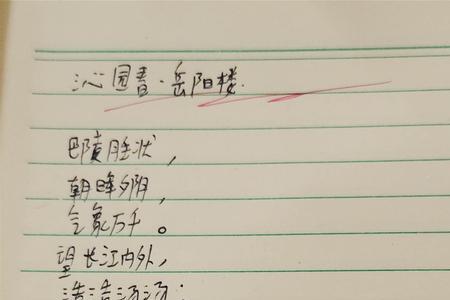 沁园春·岳阳楼.
巴陵胜状,
朝晖夕阴,
气象万千。
望长江内外,
浩浩汤汤;